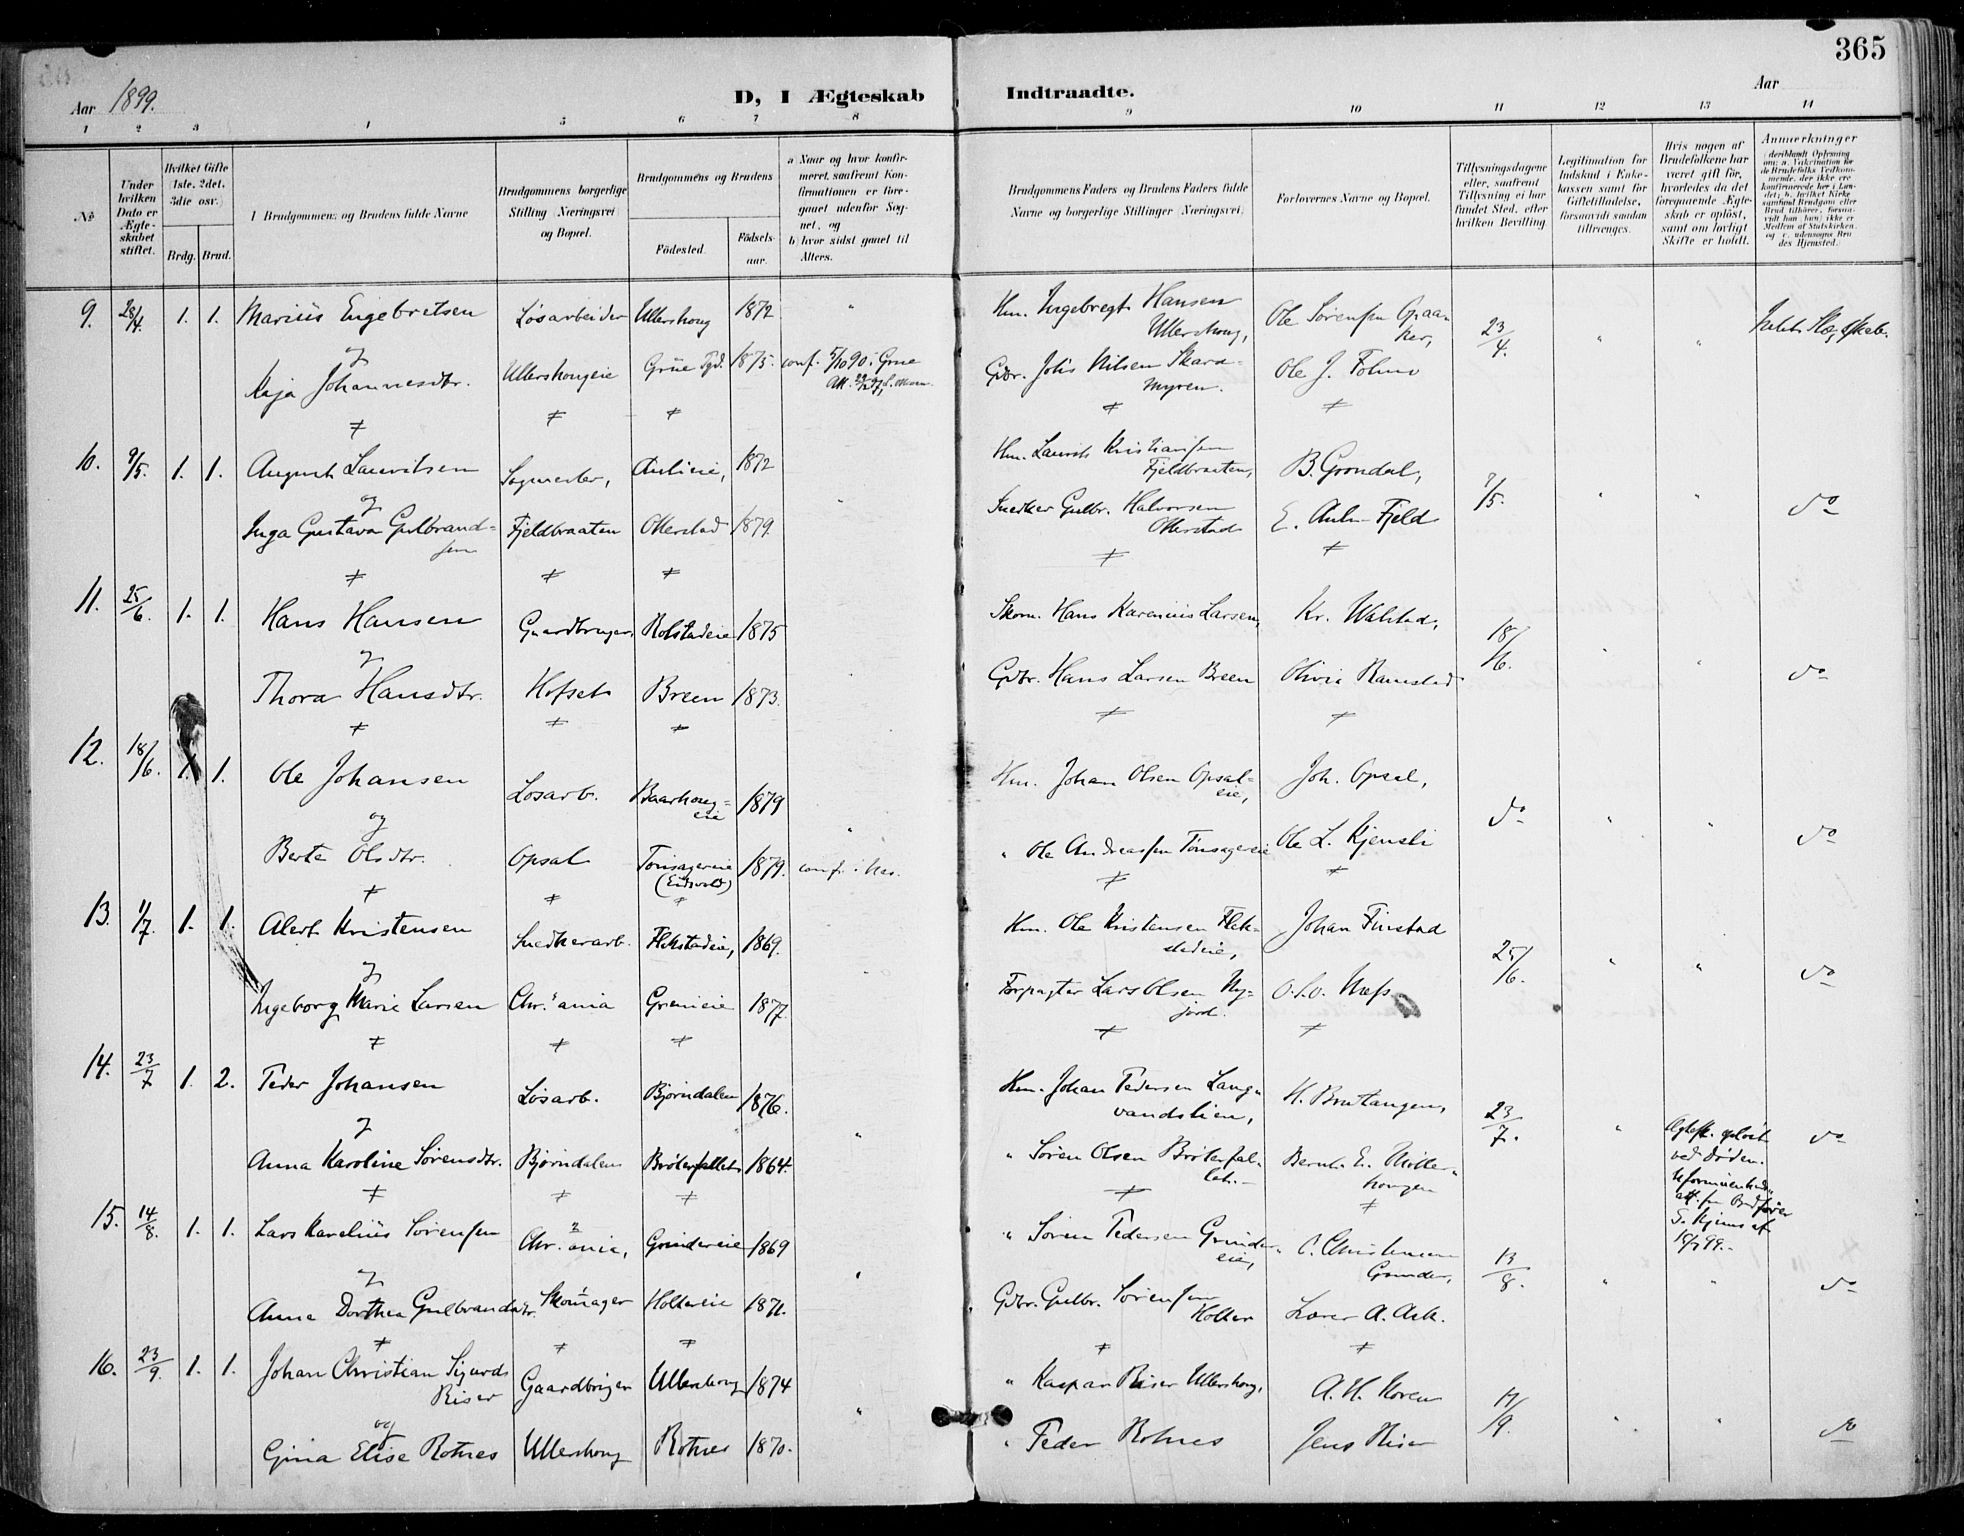 365
Aar 1899.
D, I Ægteskab Indtraadte.
Aar
1 2 3 4 5 6 7 8 9 10 11 12 13 14
No
Under hvilken Dato er Ægteskabet stiftet.
Hvilket Gifte (1ste, 2det, 3die osv.)
Brdg. Brud.
Brudgommens og Brudens fulde Navne
Brudgommens borgerlige Stilling (Næringsvei) og Bopæl.
Brudgommens og Brudens
Fødested.
Fødselsaar.
a Naar og hvor konfirmeret, saafremt Konfirmationen er foregaaet udenfor Sognet, og
b) hvor sidst gaaet til Alters.
Brudgommens Faders og Brudens Faders fulde Navne og borgerlige Stillinger (Næringsvei)
Forlovernes Navne og Bopæl.
Tillysningsdagene eller, saafremt Tillysning ei har fundet Sted, efter hvilken Bevilling.
Legitimation for Indskud i Enkekassen samt for Giftetilladelse, forsaavidt saadan tiltrænges.
Hvis nogen af Brudefolkene har været gift før, hvorledes da det foregaaende Ægteskab er opløst, samt om lovligt Skifte er holdt.
Anmerkninger
9. 28/4. 1. 1. Marius Engebretsen Løsarbeider Ullershoug 1872 " Hm. Ingebregt Hansen Ullershoug, Ole Sørensen Opaaker, 23/4. " "
og
Kaja Johannesdtr. Ullershougeie Grue Pgd. 1875. conf. 5/10 90 i Grue Gbr. Johs Nilsen Skardmyren. Ole J. Folmo
10. 9/5. 1. 1. August Lauritsen Sagmester, Aulieie, 1872 Hm. Laurits Kristiansen Fjeldbraaten, B. Grøndal, 7/5. " " do
og
Inga Gustava Gulbrandsen Fjeldbraaten Ollerstad 1879. Snedker Gulbr. Halvorsen Ollerstad E. Auli-Fjeld
11. 25/6. 1. 1. Hans Hansen Gaardbruger, Rolstadeie 1875 Skom. Hans Karenius Larsen, Kr. Walstad, 18/6. " " do
og
Thora Hansdtr. Hofset Breen 1873. Gdbr. Hans Larsen Breen Olivia Ramstad
12. 18/6. 1. 1. Ole Johansen Løsarb. Baarhougeie 1879 Hm. Johan Olsen Opsaleie, Joh. Opsal, do " " do
og
Berte Olsdtr. Opsal Tønsagereie (Eidsvold) 1879. conf. i Nes. " Ole Andreassen Tønsagereie Ole L. Kjensli
13. 1/7. 1. 1. Alert Kristensen Snedkerarb. Flekstadeie, 1869. Hm. Ole Kristensen Flekstadeie, Johan Finstad 25/6. " " do
og
Ingeborg Marie Larsen Chr.ania Grenieie 1877. Forpagter Lars Olsen Nyjord. O. L. O. Næss.
14. 23/7 1. 2. Peder Johansen Løsarb. Bjørndalen 1876. Hm. Johan Pedersen Langvandslien, H. Brutangen, 23/7. " Ægtesk. opløst ved Døden. do
og
Anna Karoline Sørensdtr. Bjørndalen Brøterfallet 1864. " Søren Olsen Brøterfallet. Bernh. E. Møllerhougen
15. 14/8. 1. 1. Lars Karelius Sørensen Chr.ania, Grindereie 1869 " Søren Pedersen Grindereie, C. Christensen Grinder, 13/8. " " do
og
Anna Dorthea Gulbrandsdtr. Skomager Holtereie 1871. Gdbr. Gulbr. Sørensen Holter Lars A. Ask.
16. 23/9. 1. 1. Johan Christian Sigurd Riser Gaardbruger Ullershoug 1874 " Kaspar Riser Ullershoug, A. H. Horen 17/9. " " do
og
Gina Elise Rotnes Ullershoug Rotnes 1870. " Peder Rotnes Jens Riser